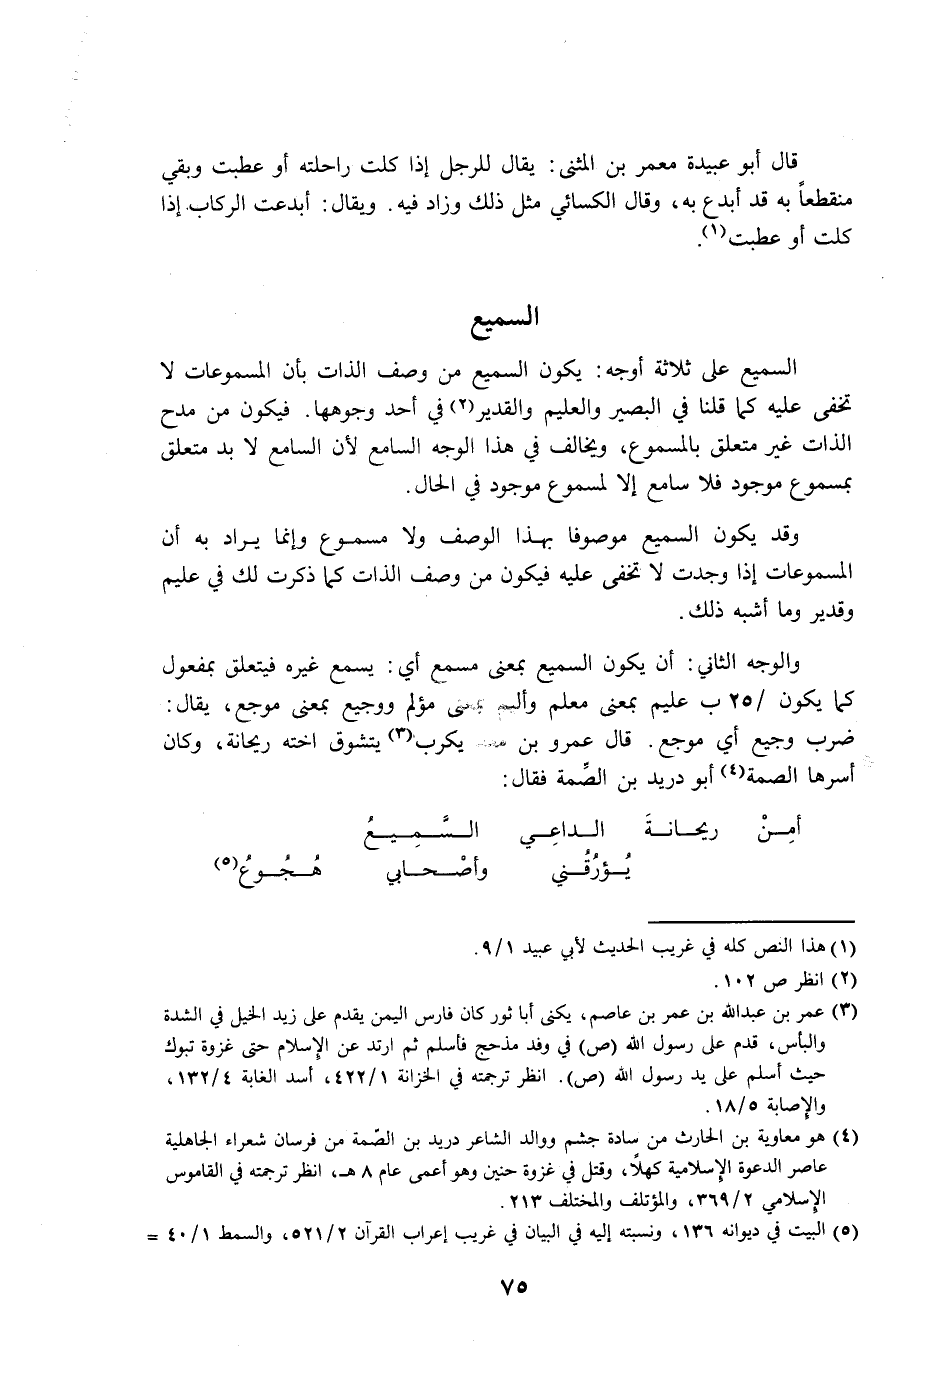 قال أبو عبيدة معمر بن المثنى: يقال للرجل إذا كلت راحلته أو عطبت وبقي
منقطعاً به قد أبدع به، وقال الكسائي مثل ذلك وزاد فيه. ويقال: أبدعت الركاب إذا
كلت أو عطبت(١).
السميع
السميع على ثلاثة أوجه: يكون السميع من وصف الذات بأن المسموعات لا
تخفى عليه كما قلنا في البصير والعليم والقدير(٢) في أحد وجوهها. فيكون من مدح
الذات غير متعلق بالمسموع، ويخالف في هذا الوجه السامع لأن السامع لا بد متعلق
بمسموع موجود فلا سامع إلا لمسموع موجود في الحال.
وقد يكون السميع موصوفا بهذا الوصف ولا مسموع وإنما يراد به أن
المسموعات إذا وجدت لا تخفى عليه فيكون من وصف الذات كما ذكرت لك في عليم
وقدير وما أشبه ذلك.
والوجه الثاني: أن يكون السميع بمعنى مسمع أي: يسمع غيره فيتعلق بمفعول
كما يكون /٢٥ ب عليم بمعنى معلم وأليم بمعنى مؤلم ووجيع بمعنى موجع، يقال:
ضرب وجيع أي موجع. قال عمرو بن معد يكرب(٣) يتشوق اخته ريحانة، وكان
أسرها الصمة(٤) أبو دريد بن الصِّمة فقال:
أمِنْ ريحانةَ الداعِي السَّمِيعُ
يُؤرُقُني وأصْحابي هُجُوعُ(٥)
(١) هذا النص كله في غريب الحديث لأبي عبيد ٩/١.
(٢) انظر ص ١٠٢.
(٣) عمر بن عبدالله بن عمر بن عاصم، يكنى أبا ثور كان فارس اليمن يقدم على زيد الخيل في الشدة
والبأس، قدم على رسول الله (ص) في وفد مذحج فأسلم ثم ارتد عن الإسلام حتى غزوة تبوك
حيث أسلم على يد رسول الله (ص). انظر ترجمته في الخزانة ٤٢٢/١، أسد الغابة ١٣٢/٤،
والإصابة ١٨/٥.
(٤) هو معاوية بن الحارث من سادة جشم ووالد الشاعر دريد بن الصّمة من فرسان شعراء الجاهلية
عاصر الدعوة الإسلامية كهلًا، وقتل في غزوة حنين وهو أعمى عام ٨ هـ، انظر ترجمته في القاموس
الإسلامي ٣٦٩/٢، والمؤتلف والمختلف ٢١٣.
(٥) البيت في ديوانه ١٣٦، ونسبته إليه في البيان في غريب إعراب القرآن ٥٢١/٢، والسمط ٤٠/١ =
٧٥